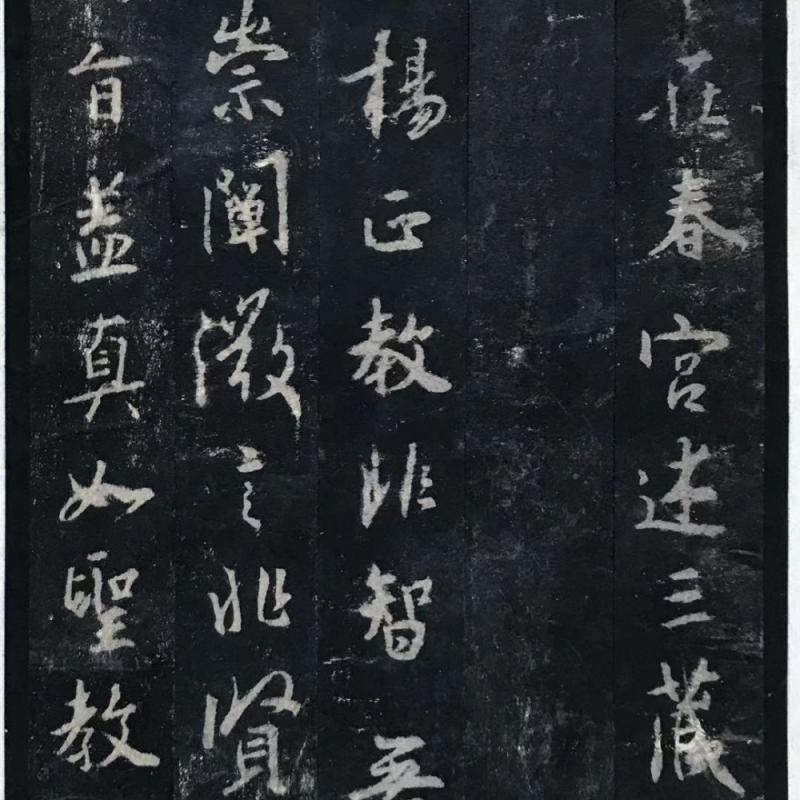 在春宮述三藏
楊正教非智
崇闡微言非賢
旨盖真如聖教